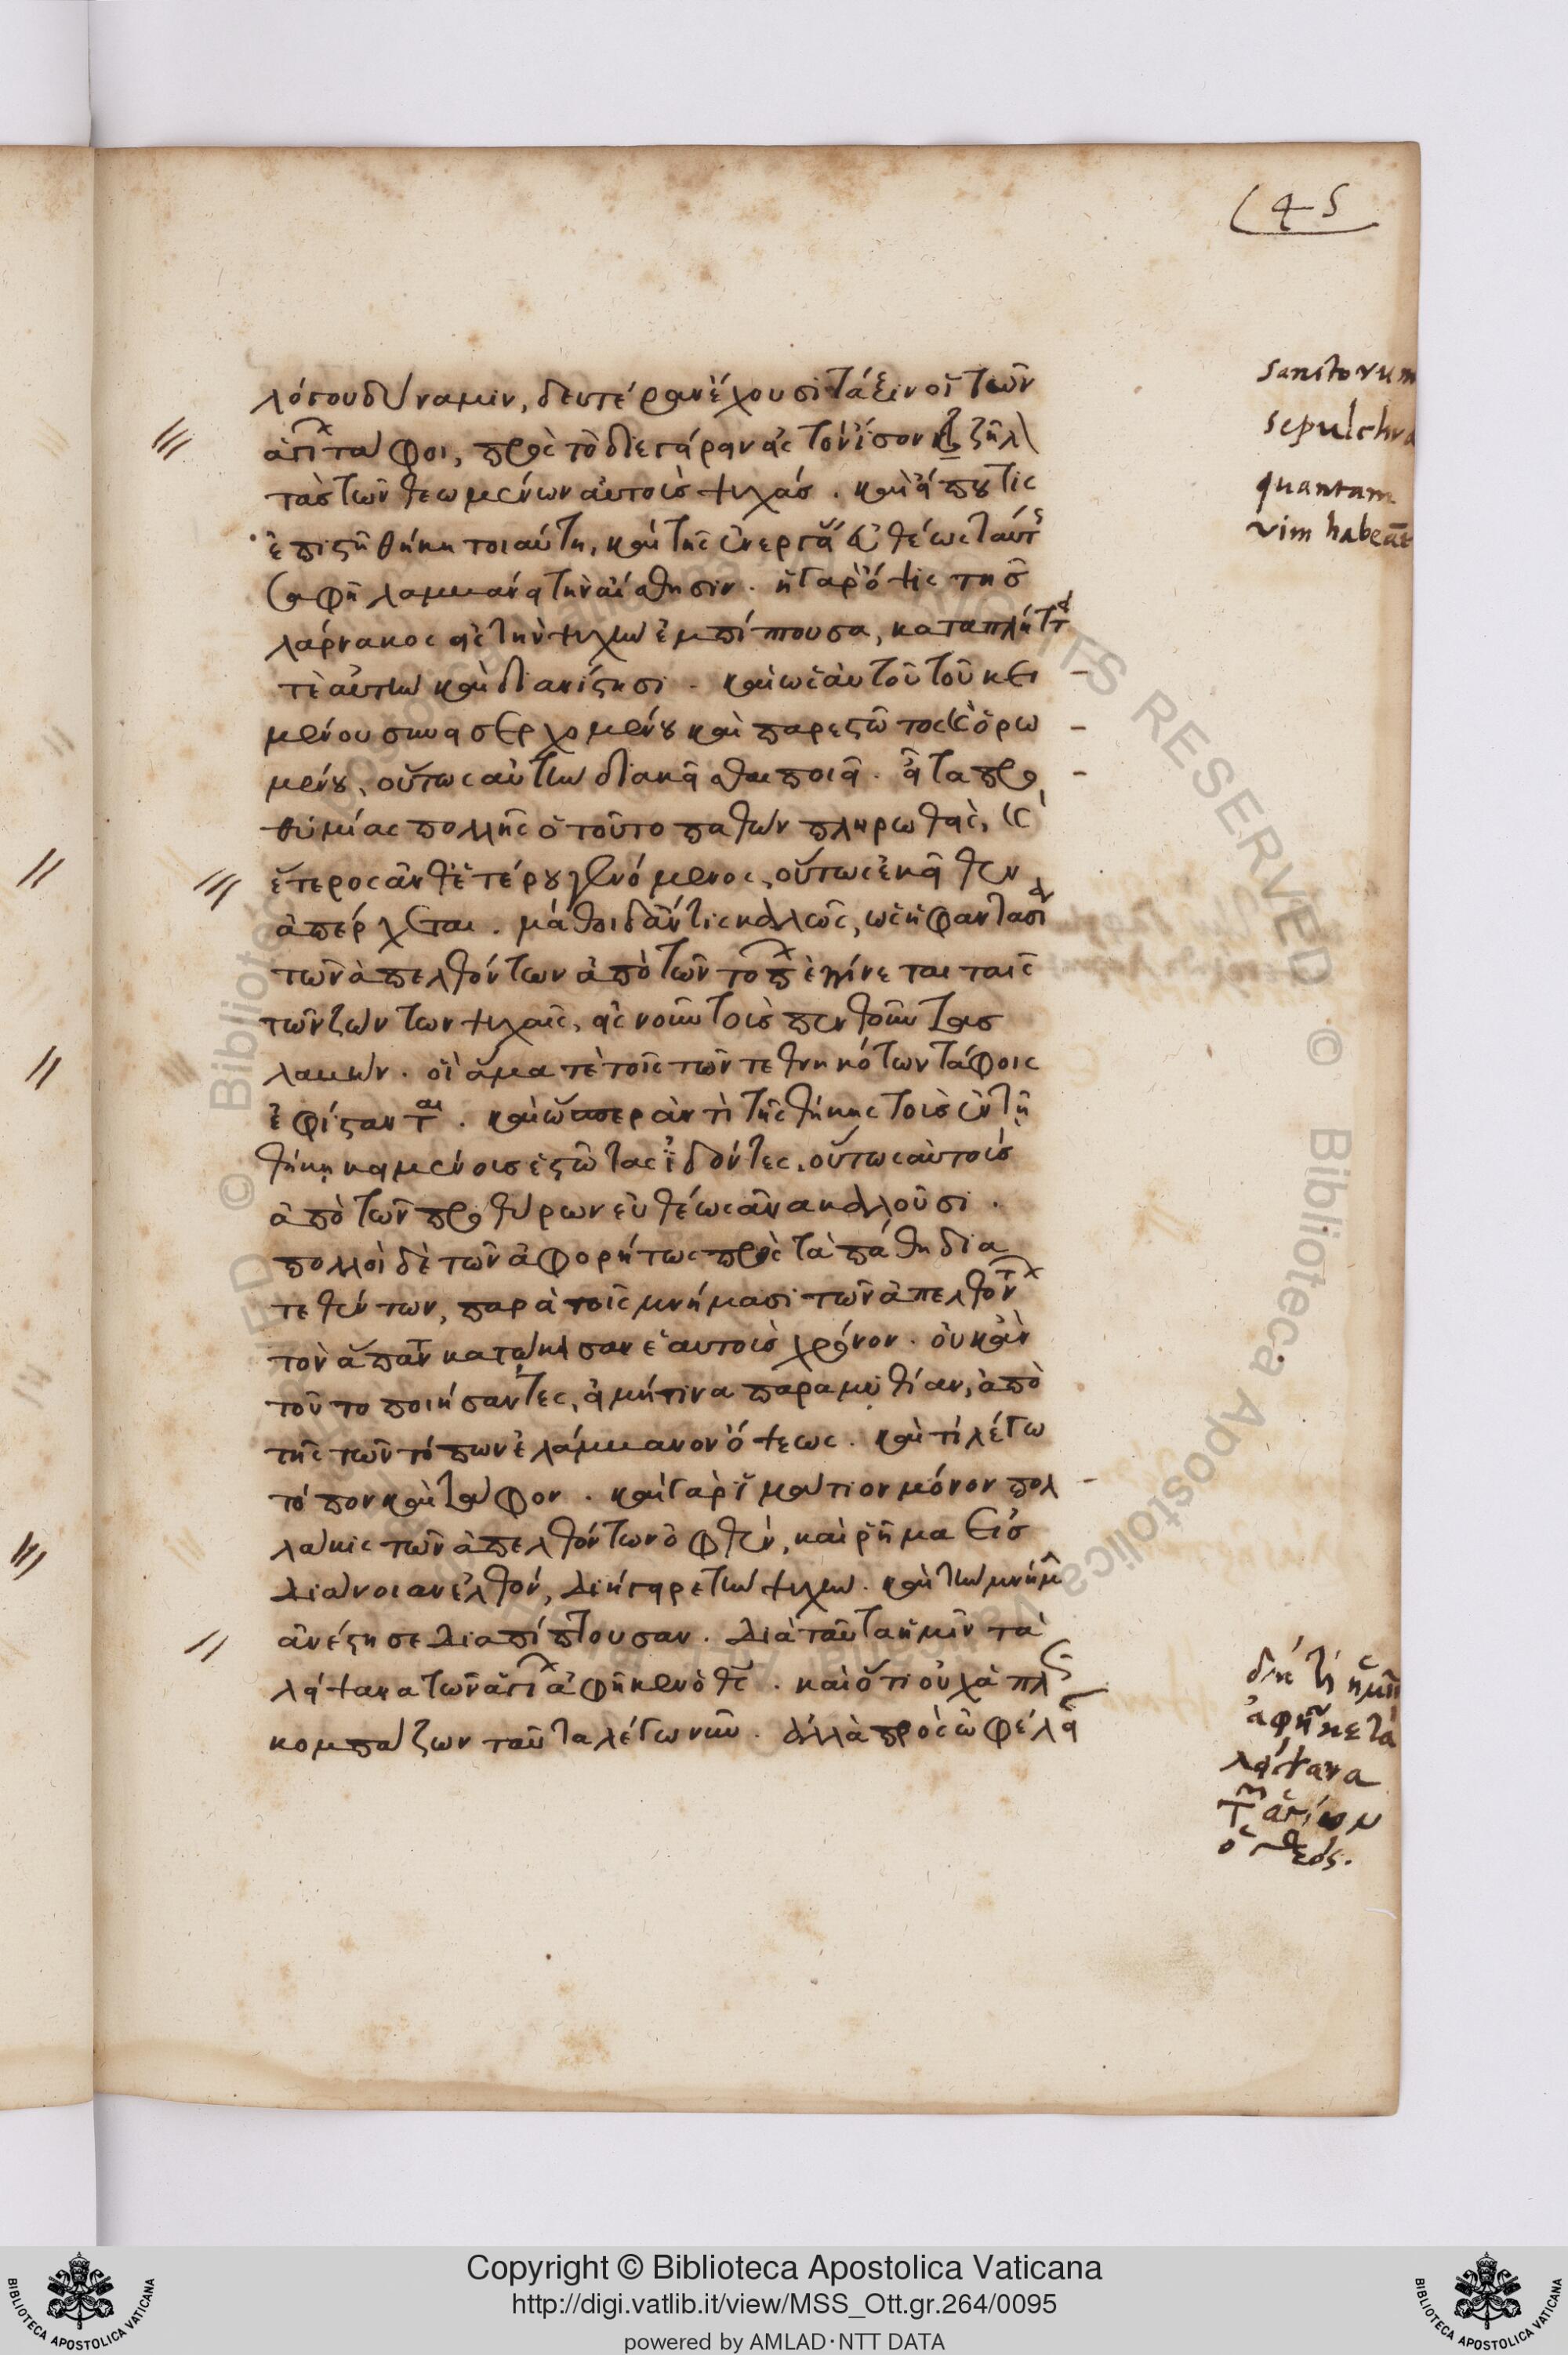 45
λόγου δύναμιν, δευτέραν ἔχουσι τάξιν οἱ τῶν
ἁγίων τάφοι, πρὸς τὸ διεγείρειν εἰς τὸν ἴσον ζῆλον
τὰς τῶν θεωμένων αὐτοὺς ψυχάς. κἂν εἴ που τις
ἐπιστῇ θήκῃ τοιαύτῃ, καὶ τῆς ἐνεργείας εὐθέως ταύτης
σαφῆ λαμβάνει τὴν αἴσθησιν. ἡ γὰρ ὄψις τῆς
λάρνακος εἰς τὴν ψυχὴν ἐμπίπτουσα, καταπλήττει
τὲ αὐτὴν καὶ διανίστησι. καὶ ὡς αὐτοῦ τοῦ κει
μένου συνεισερχομένου καὶ παρεστῶτος καὶ ὁρω
μένου, οὕτως αὐτὴν διακεῖσθαι ποιεῖ. εἶτα προ
θυμίας πολλῆς ὁ τοῦτο παθὼν πληρωθεὶς, καὶ
ἕτερος ἀνθ' ἑτέρου γενόμενος, οὕτως ἐκεῖθεν
ἀπέρχεται. μάθοι δ' ἄν τις καλῶς, ὡς ἡ φαντασία
τῶν ἀπελθόντων ἀπὸ τῶν τόπων ἐγγίνεται ταῖς
τῶν ζώντων ψυχαῖς, εἰς νοῦν τοὺς πενθοῦντας
λαβών. οἳ ἅμα τὲ τοῖς τῶν τεθνηκότων τάφοις
ἐφίστανται. καὶ ὥσπερ ἀντὶ τῆς θήκης τοὺς ἐν τῇ
θήκῃ κειμένους ἑστῶτας ἰδόντες, οὕτως αὐτοὺς
ἀπὸ τῶν προθύρων εὐθέως ἀνακαλοῦσι.
πολλοὶ δὲ τῶν ἀφορήτως πρὸς τὰ πάθη δια
τεθέντων, παρὰ τοῖς μνήμασι τῶν ἀπελθόντων
τὸν ἅπαντα κατῴκισαν ἑαυτοὺς χρόνον. οὐκ ἂν
τοῦτο ποιήσαντες, εἰ μή τινα παραμυθίαν, ἀπὸ
τῆς τῶν τόπων ἐλάμβανον ὄψεως. καὶ τί λέγω
τόπον καὶ τάφον. καὶ γὰρ ἱμάτιον μόνον πολ
λάκις τῶν ἀπελθόντων ὀφθὲν, καὶ ῥῆμα εἰς
διάνοιαν ἐλθὸν, διήγειρε τὴν ψυχὴν. καὶ τὴν μνήμην
ἀνέστησε διαπίπτουσαν. διὰ ταῦτα ἡμῖν τὰ
λείψανα τῶν ἁγίων ἀφῆκεν ὁ θεός. καὶ ὅτι οὐχ ἁπλῶς
κομπάζων ταῦτα λέγω νῦν. ἀλλὰ πρὸς ὠφέλει
sanctorum
sepulchra
quantam
vim habeāt
διὰ τί ἡμῖν
ἀφῆκε τὰ
λείψανα
τῶν ἁγίων
ὁ θεός.
Copyright © Biblioteca Apostolica Vaticana
http://digi.vatlib.it/view/MSS_Ott.gr.264/0095
powered by AMLAD·NTT DATA
BIBLIOTECA APOSTOLICA VATICANA
BIBLIOTECA APOSTOLICA VATICANA